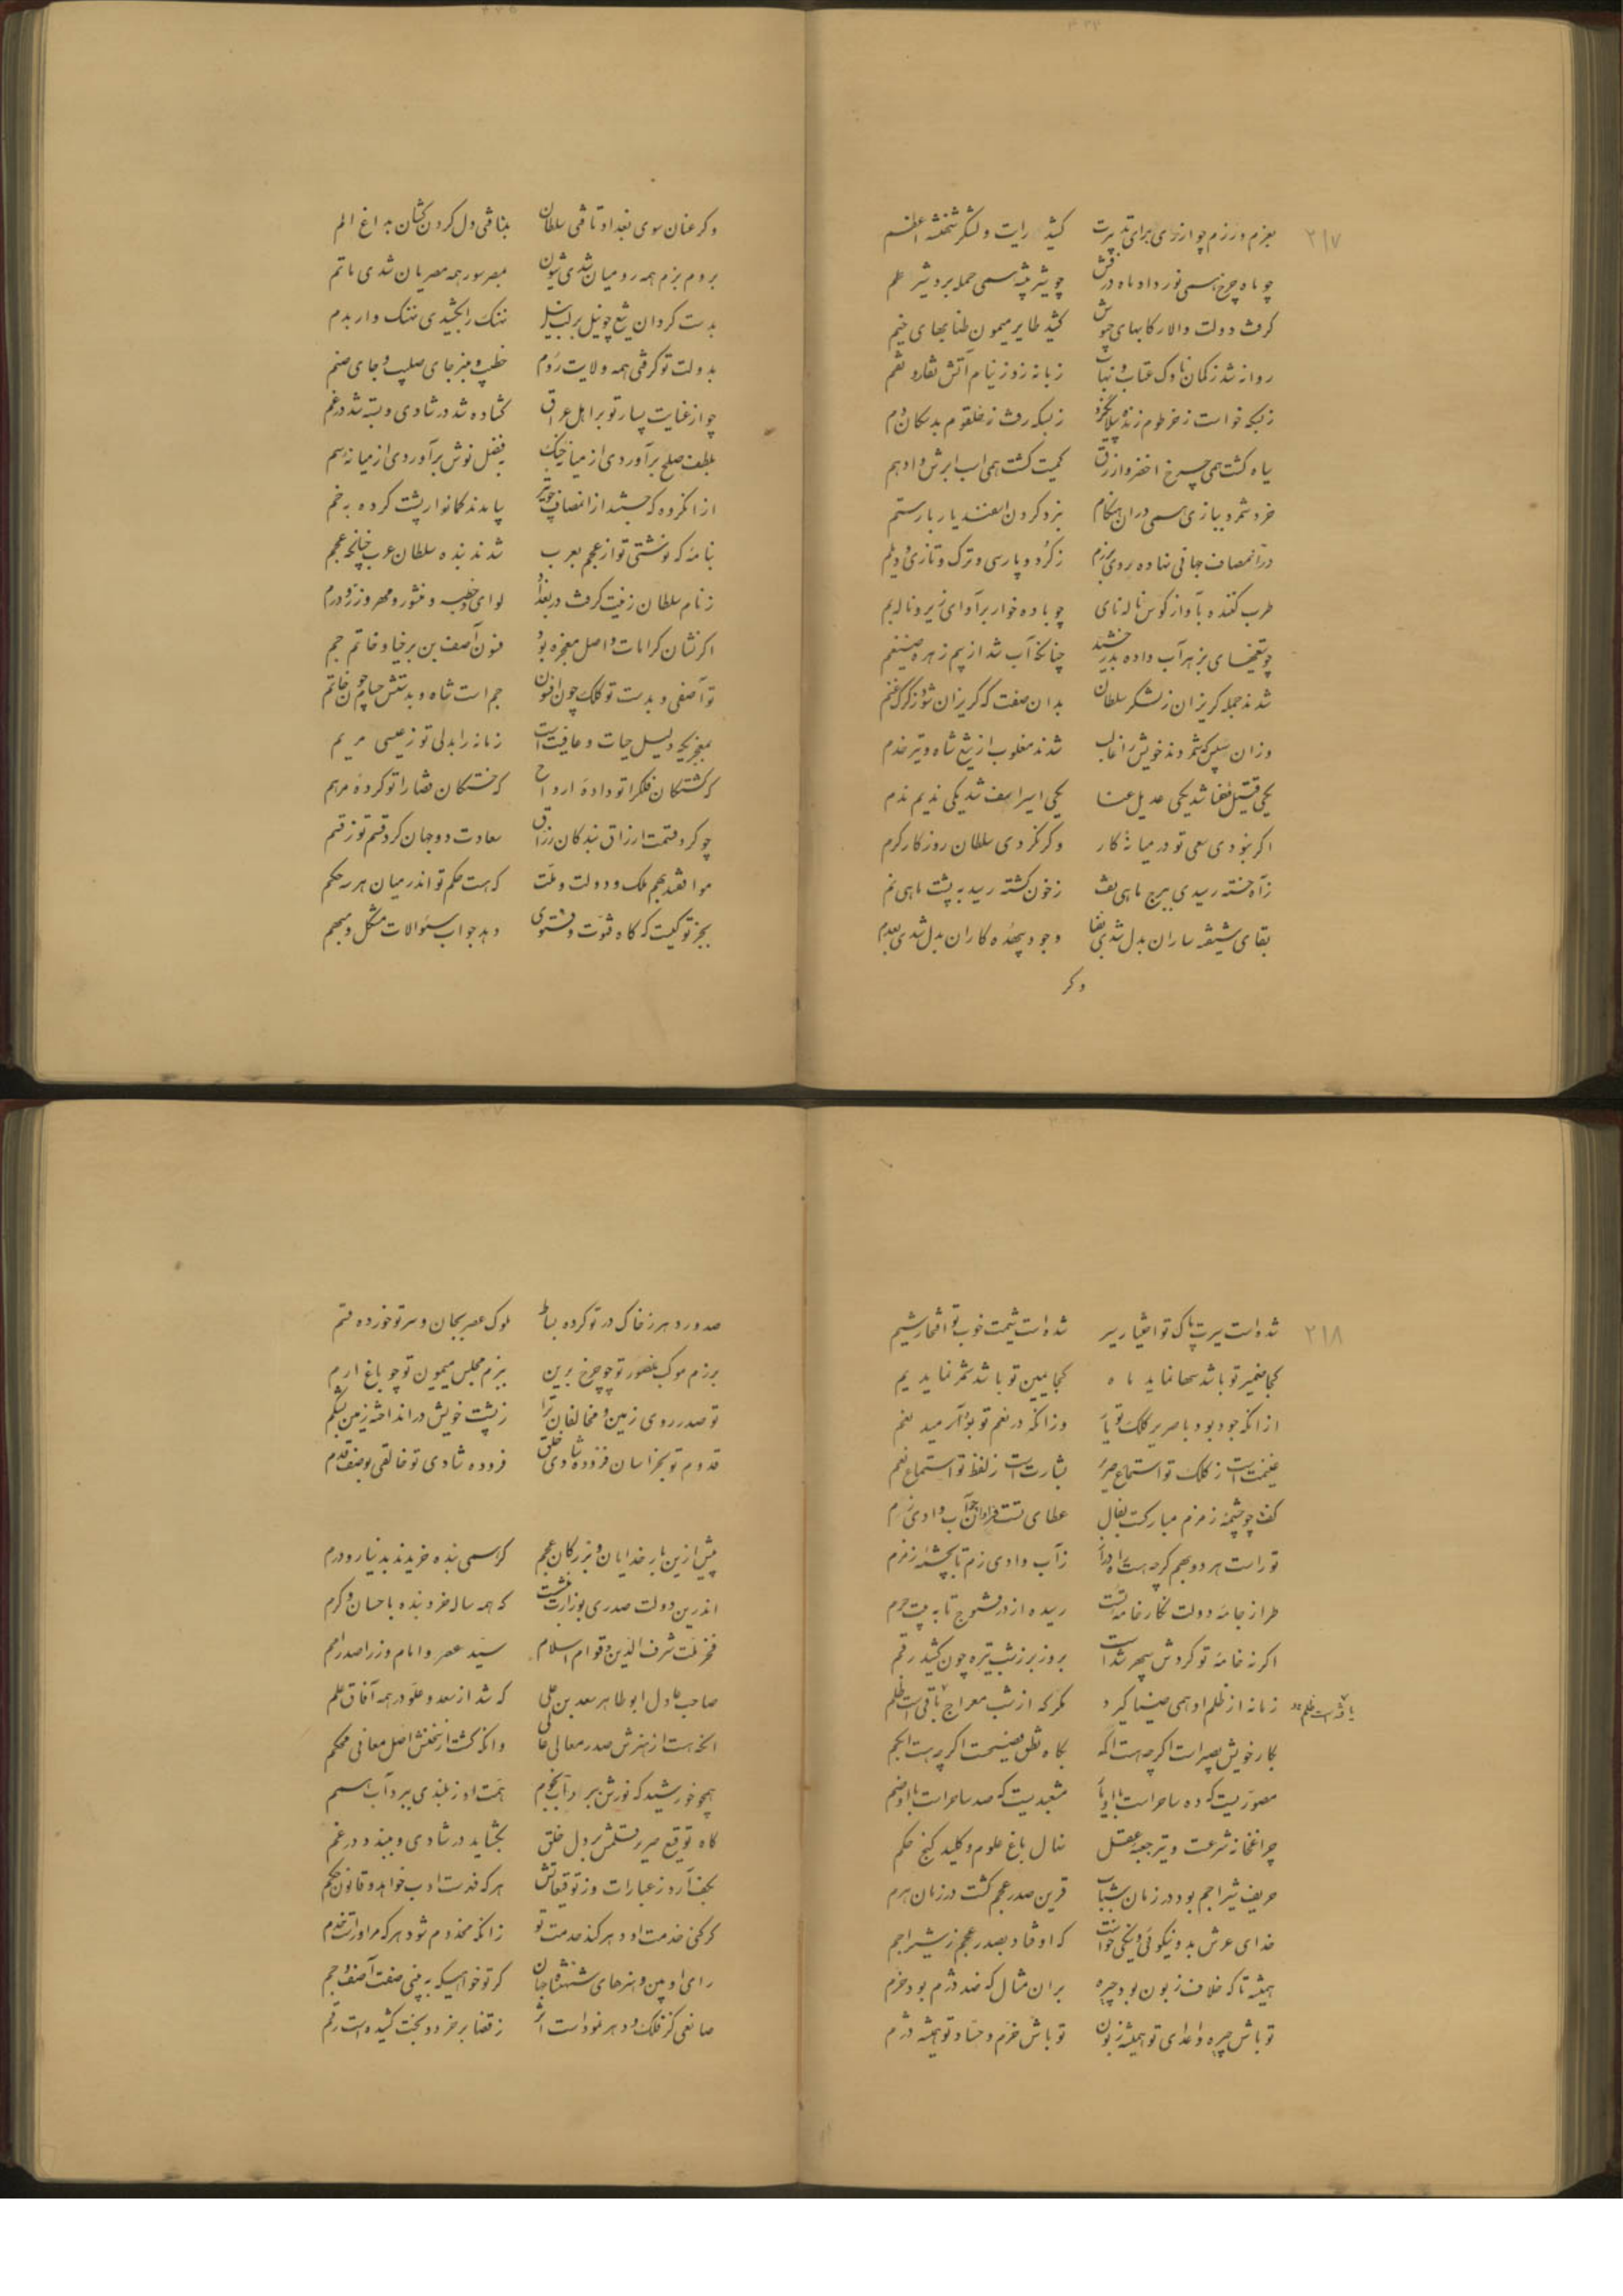 ۲۱۷
بعزم و رزم چو از ری برای تدبیرت کشید رایت و لشکر شهنشه اعظم
چو ماه چرخ همی نور داد ماه درفش چو شیر بیشه همی حمله برد شیر علم
گرفت دولت والا رکابهای چوش کشید طایر میمون طنابهای خیم
روانه شد ز کمان ناوک عتاب و نهاب زبانه زد ز نیام آتش نقار و نقم
ز بسکه خواست ز خرطوم زنده پیلان گرد ز بسکه رفت ز حلقوم بدسگالان دم
سیاه گشت همی چرخ اخضر و ازرق کمیت گشت همی اسب ابرش و ادهم
خرد شمرد ببازی همی در آن هنگام نبرد کردن اسفندیار با رستم
در آن مصاف جهانی نهاده روی برزم ز کرد و پارسی و ترک و تازی و دیلم
طرب کننده بآواز کوس و ناله نای چو باده خوار بر آوای زیر و ناله بم
چو تیغهای بزهر آب داده بدرخشید چنانکه آب شد از بیم زهره ضیغم
شدند جمله گریزان ز لشکر سلطان بدان صفت که گریزان شود ز گرگ غنم
وزان سپس که شمردند خویش را غالب شدند مغلوب از تیغ شاه و تیر خدم
یکی قتیل فنا شد یکی عدیل عنا یکی اسیر اسف شد یکی ندیم ندم
اگر نبودی سعی تو در میانه کار وگر نکردی سلطان روزگار کرم
ز آه خسته رسیدی ببرج ماهی تف ز خون کشته رسید به پشت ماهی نم
بقای شیفته ساران بدل شدی بفنا وجود بیهده کاران بدل شدی بعدم
وگر
وگر عنان سوی بغداد تافتی سلطان بتافتی دل گردن کشان بداغ الم
بروم بزم همه رومیان شدی شیون بمصر سور همه مصریان شدی ماتم
بدست گردان تیغ چو نیل بر لب نیل نهنگ را بکشیدی نهنگ وار بدم
بدولت تو گرفتی همه ولایت روم خطیب و منبر جای صلیب و جای صنم
چو از عنایت بسیار تو بر اهل عراق گشاده شد در شادی و بسته شد در غم
بلطف صلح برآوردی از میانه جنگ بفضل نوش برآوردی از میانه سم
از آن گروه که جستند از انصاف چو تیر بیامدند کمانوار پشت کرده بخم
بنامه که نوشتی تو از عجم بعرب شدند بنده سلطان عرب چنانکه عجم
ز نام سلطان زینت گرفت در بغداد لوای و خطبه و منشور و مهر و زر و درم
اگر نشان کرامات و اصل معجزه بود فنون آصف بن برخیا و خاتم جم
تو آصفی و بدست تو کلک چون افسون جم است شاه و بدستش حسام چون خاتم
بمعجزی که دلیل حیات و عافیت است زمانه را بدلی تو ز عیسی مریم
که کشتگان فلک را تو داده ارواح که خستگان قضا را تو کرده مرهم
چو کرد قسمت ارزاق بندگان رزاق سعادت دو جهان کرد قسم تو ز قسم
موافقند بهم ملک و دولت و ملت که هست حکم تو اندر میان هر سه حکم
بجز تو کیست که گاه فتوت و فتوی دهد جواب سئوالات مشکل و مبهم
۲۱۸
شده است سیرت پاک تو اختیار سیر شده است شیمت خوب تو افتخار شیم
کجا ضمیر تو باشد سها نماید ماه کجا یمین تو باشد شمر نماید یم
از آنکه جود بود با صریر کلک تو یار وز آنکه در نعم تو بود آرمید نعم
غنیمت است ز کلک تو استماع صریر بشارت است ز لفظ تو استماع نعم
کفت چو چشمه زمزم مبارکست بفال عطای تست فراوان چو آب وادی زم
تو راست هر دو بهم گرچه هست راه دراز ز آب وادی زم تا بچشمه زمزم
طراز جامه دولت نگار خامه تست رسیده از در فشتوج تا به بیت حرم
اگر نه خامه تو گردش سپهر شد است بروز بر ز شب تیره چون کشید رقم
زمانه از ظلم او همی ضیا گیرد مگر که از شب معراج باقی است ظلم
یافته است ظلم
بکار خویش بصیر است اگرچه هست اکمه بگاه نطق فصیحست اگرچه هست ابکم
مصوریست که ده ساحر است با او یار مشعبدیست که صد ساحر است با او ضم
چراغ خانه شرعست و ترجمه عقل نهال باغ علوم و کلید گنج حکم
حریف شیر اجم بود در زمان شباب قرین صدر عجم گشت در زمان هرم
خدای عرش بدو نیکوئی و نیکی خواست که اوفتاد بصدر عجم ز شیر اجم
همیشه تا که خلاف زبون بود چیره بر آن مثال که ضد دژم بود خرم
تو باش چیره و اعدای تو همیشه زبون تو باش خرم و حساد تو همیشه دژم
صدور دهر ز خاک در تو کرده بساط ملوک عصر بجان و سر تو خورده قسم
برزم موکب منصور تو چو چرخ برین ببزم مجلس میمون تو چو باغ ارم
تو صدر روی زمین و مخالفان ترا ز پشت خویش در انداخته زمین بشکم
قدوم تو بخراسان فزوده شادی خلق فزوده شادی تو خالقی بوصف قدم
پیش ازین بار خدایان و بزرگان عجم گر همی بنده خریدند بدینار و درم
اندرین دولت صدری بوزارت بنشست که همه ساله خرد بنده باحسان و کرم
فخر ملت شرف الدین و قوام اسلام سید عصر و امام وزرا صدر امم
صاحب عادل ابو طاهر سعد بن علی که شد از سعد و علو در همه آفاق علم
آنکه هست از هنرش صدر معالی عالی وانکه گشت از سخنش اصل معانی محکم
همچو خورشید که نورش ببرد آب نجوم همت او ز بلندی ببرد آب همم
گاه توقیع صریر قلمش بر دل خلق بگشاید در شادی و ببندد در غم
بکف آرد ز عبارات و ز توقیعاتش هر که فهرست ادب خواهد و قانون حکم
گر کنی خدمت او دهر کند خدمت تو زانکه مخدوم شود هر که مر او راست خدم
رای او بین و هنرهای شهنشاه جهان گر تو خواهی که به بینی صفت آصف و جم
صانعی کز فلک و دهر نموداست اثر ز قضا بر خرد و بخت کشیده است رقم